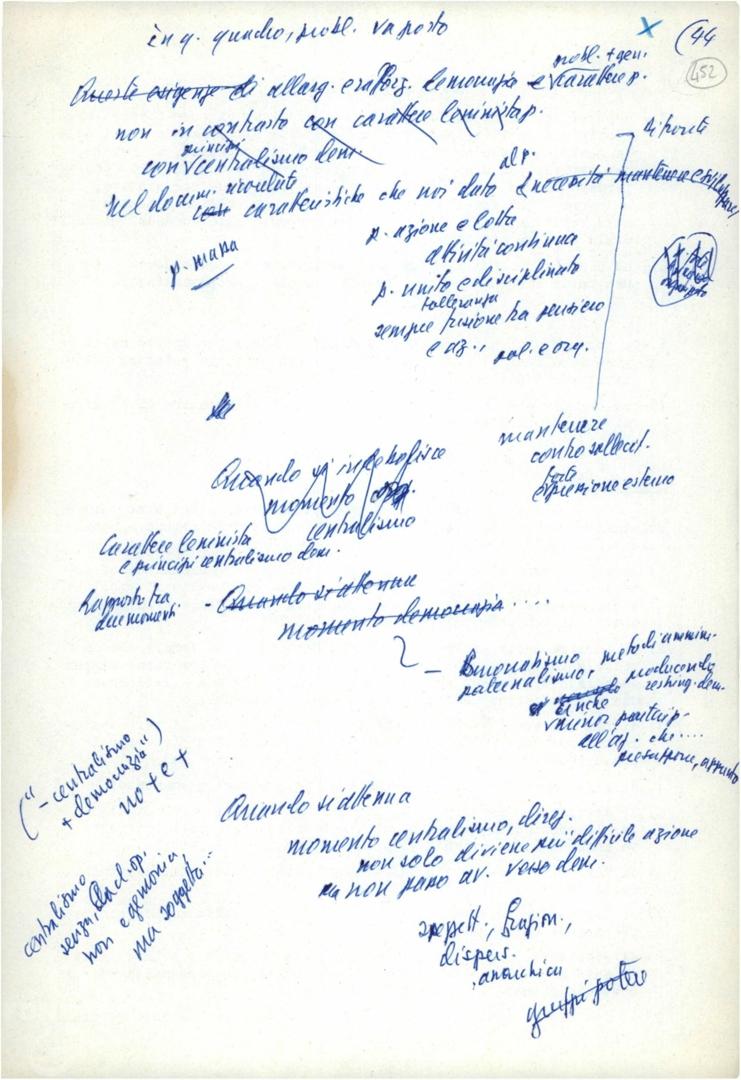 in q. quadro, probl. va posto
X
(44
452
Queste esigenze di allarg. e rafforz. democrazia e carattere p.
probl. + gen.
non in contrasto con carattere leninista p.
principi
con centralismo dem.
Nel docum. ricordate
con caratteristiche che noi dato al p. necessità mantenere e sviluppare
di fronte
p. massa
p. azione e lotta
attività continua
p. unito e disciplinato
tolleranza
sempre fusione tra pensiero
e az., pol. e org.
mantenere
contro sollecit.
forte
espressione esterno
Quando si indebolisce
momento org.
centralismo
Carattere leninista
e principi centralismo dem.
Rapporto tra
due momenti - Quando si attenua
momento democrazia ....
- Burocratismo, metodi ammini-
paternalismo, producendo
restring. dem.
anche
minor partecip.
all'az. che ....
presuppone, appunto
("- centralismo
+ democrazia")
no + e +
Quando si attenua
momento centralismo, direz.
non solo diviene più difficile azione
ma non passo av. verso dem.
centralismo
senza, cl. op.
non egemonia,
ma soggetta...
frazion.,
dispers.
, anarchia
gruppi potere